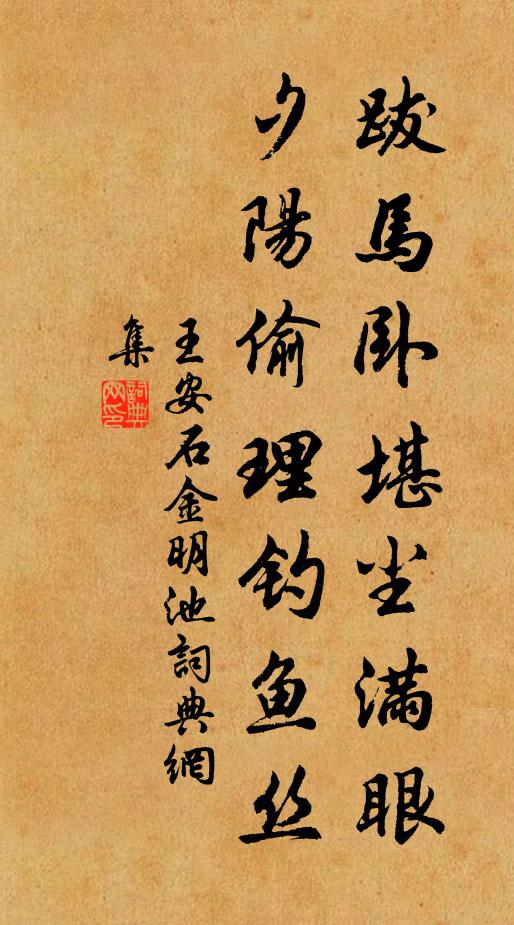 跋馬卧堪尘滿眼
夕陽偷理钓鱼丝
王安石金明池詞典網
集
詞典
网印